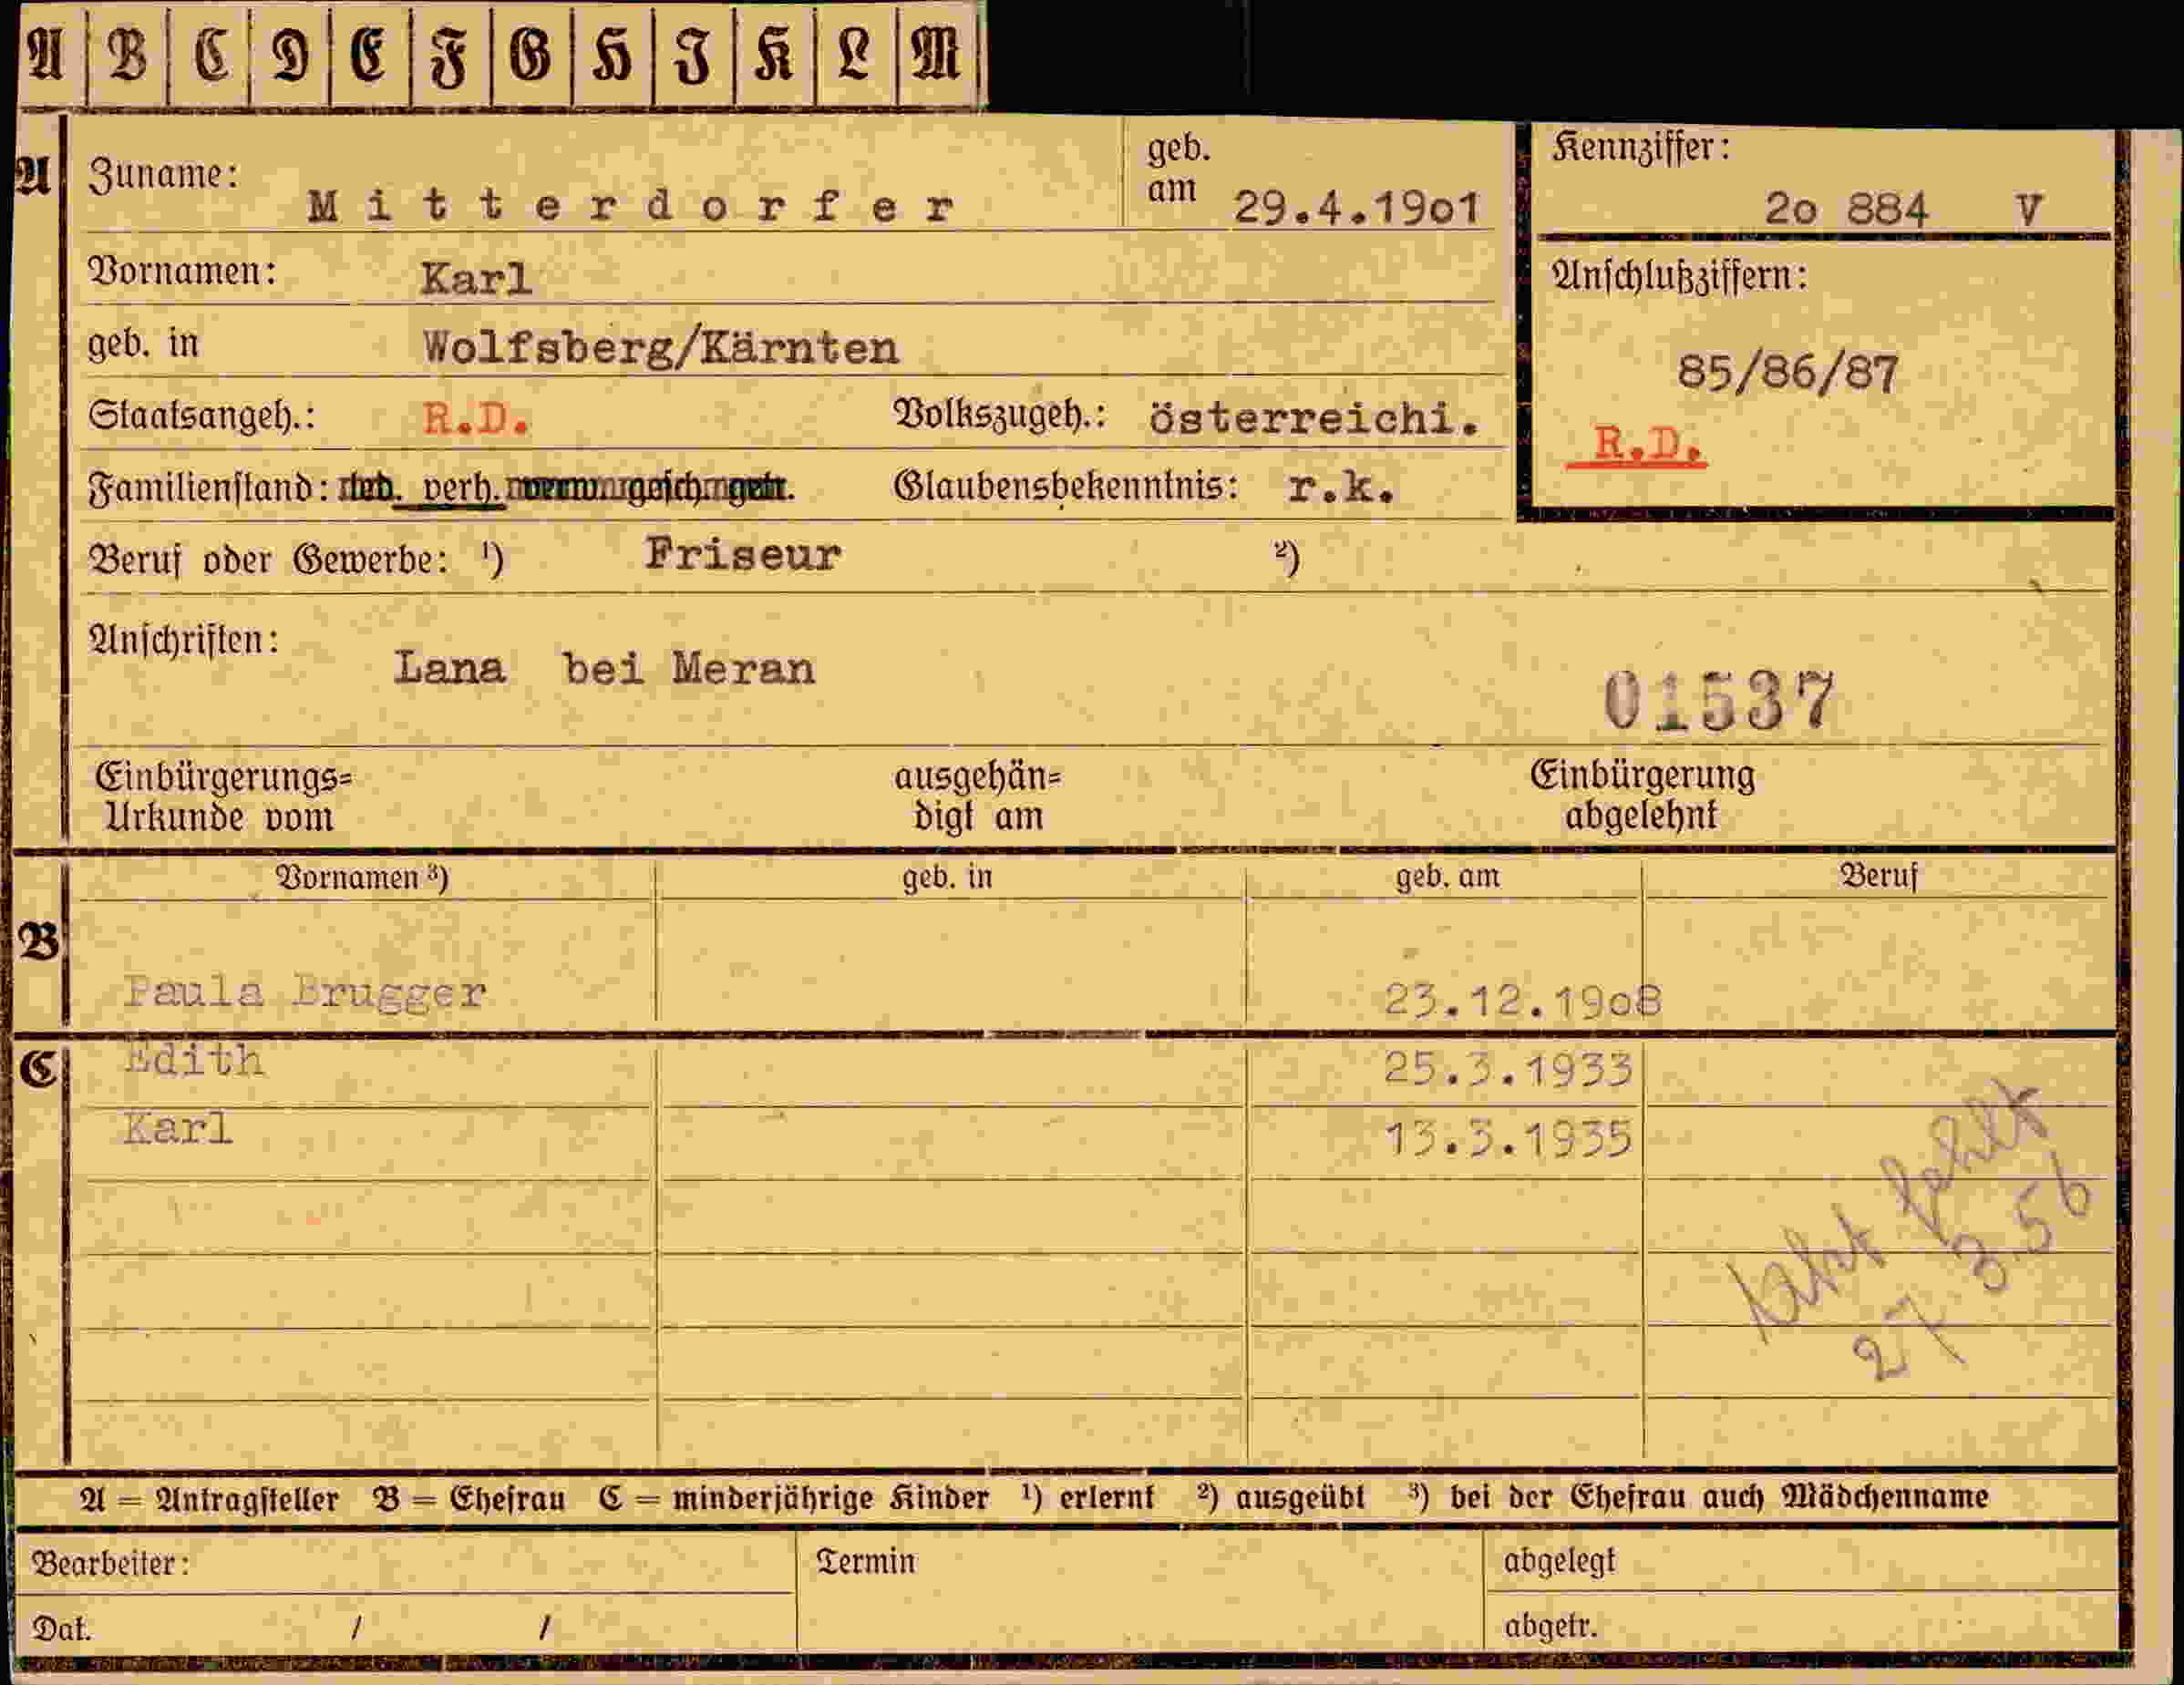 A B C D E F G H J K L M
A Zuname: Mitterdorfer geb. am 29.4.19o1 Kennziffer: 2o 884 V
Vornamen: Karl Anschlußziffern:
geb. in Wolfsberg/Kärnten 85/86/87
Staatsangeh.: R.D. Volkszugeh.: österreichi. R.D.
Familienstand: verh. Glaubensbekenntnis: r.k.
Beruf oder Gewerbe: ¹) Friseur ²)
Anschriften: Lana bei Meran 01537
Einbürgerungs= ausgehän= Einbürgerung
Urkunde vom digt am abgelehnt
Vornamen ³) geb. in geb. am Beruf
B Paula Brugger 23.12.19o8
C Edith 25.3.1933
Karl 13.3.1935
fehlt
27.3.56
A = Antragsteller B = Ehefrau C = minderjährige Kinder ¹) erlernt ²) ausgeübt ³) bei der Ehefrau auch Mädchenname
Bearbeiter: Termin abgelegt
Dat. / / abgetr.